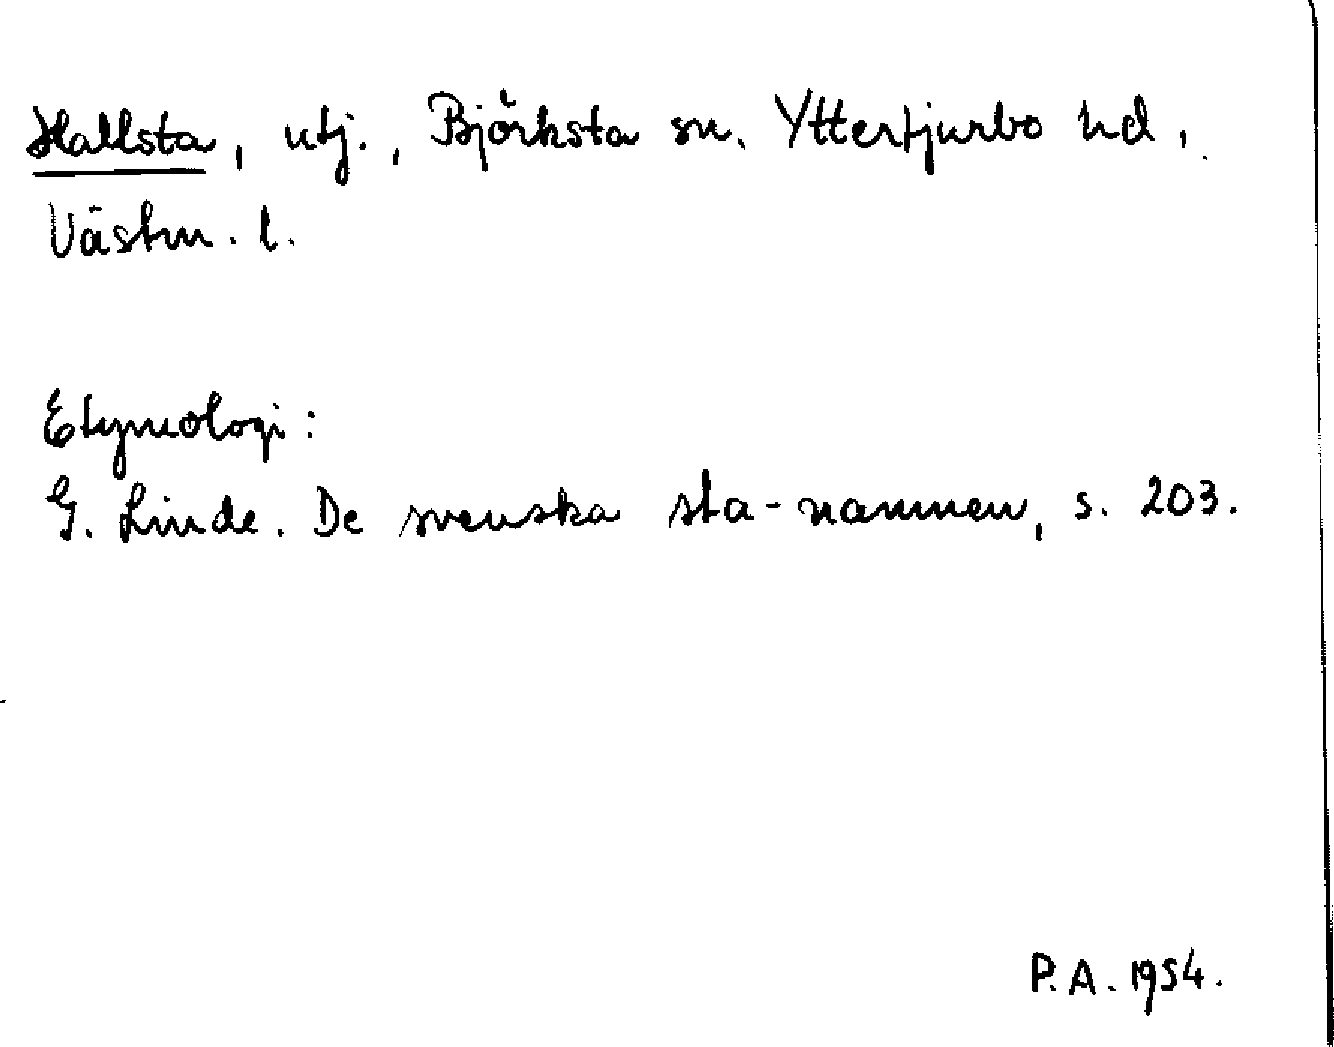 Hallsta, utj., Björksta sn. Yttertjurbo hd,
Västm. l.
Etymologi:
G. Linde. De svenska sta-namnen, s. 203.
P.A. 1954.